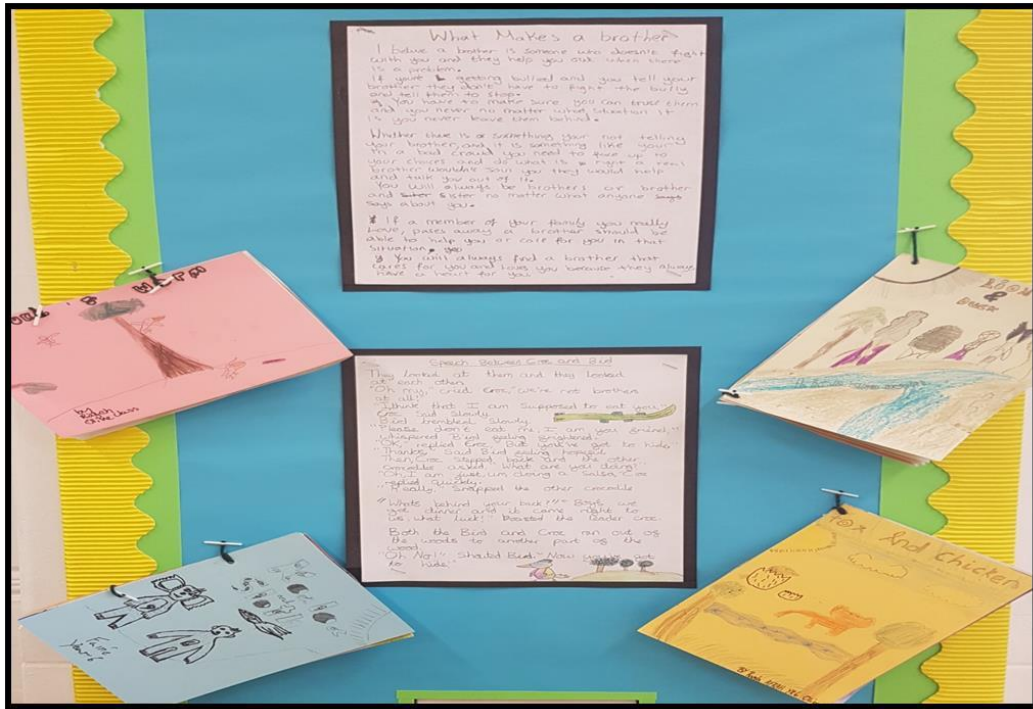 What Makes a brother
I belive a brother is someone who doesn't fight
with you and they help you out when there
is a problem.
If your getting bullied and you tell your
brother they don't have to fight the bully
and tell them to stop.
You have to make sure you can trust them
and you never no matter what situation it
is you never leave them behind.
Whether there is something your not telling
your brother, and it is something like your
in a bad crowd you need to face up to
your choices and do what is right a real
brother wouldn't you they would help
and talk you out of it.
You will always be brothers or brother
and sister no matter what anyone
says about you.
If a member of your family you really
love, passes away a brother should be
able to help you or care for you in that
situation.
You will always find a brother that
cares for you and loves you because they always
have a heart for you.
Speech Between Croc and Bird
They looked at them and they looked
at each other.
"Oh my," cried Croc, "we're not brothers
at all!"
"I think that I am supposed to eat you,"
Croc said slowly.
Bird trembled slowly.
"Please don't eat me, I am you friend,"
whispered Bird feeling frightened.
"OK," replied Croc, "But you've got to hide."
"Thanks," said Bird feeling hopeful.
Then Croc stepped back and the other
crocodile asked, "What are you doing?"
"Oh, I am just um doing a Salsa," Croc
replied quickly.
"Really," snapped the other crocodile
"Whats behind your back!?!"
got dinner and it came right to
us, what luck!" boasted the leader Croc.
Both the Bird and Croc ran out of
the woods to another part of the
wood.
"Oh No!" Shouted Bird. "Now got
to hide"
&
Fox And Chicken